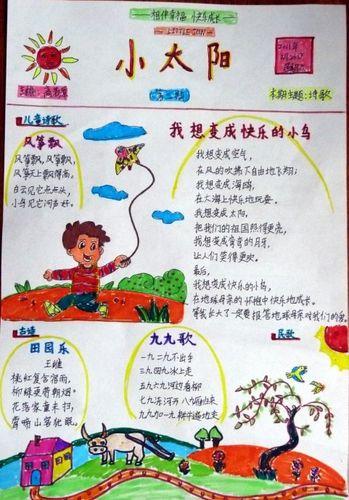 相伴幸福 快乐成长
LITTLE SUN
小太阳
第二辑
主编:
本期主题:诗歌
儿童诗歌
风筝飘
风筝飘,风筝飘,
风筝天上飘得高,
白云见它点点头,
小鸟见它问声好。
我想变成快乐的小鸟
我想变成空气,
在风的吹拂下自由地飞翔;
我想变成海鸥,
在大海上快乐地玩耍。
我想变成太阳,
把我们的祖国照得更亮,
我想变成弯弯的月牙,
让人们笑得更欢。
最后,
我想变成快乐的小鸟,
在地球母亲的怀抱中快乐地成长。
等我长大了一定要报答地球母亲对我们的爱。
古诗
田园乐
王维
桃红复含宿雨,
柳绿更带朝烟。
花落家童未扫,
莺啼山客犹眠。
九九歌
一九二九不出手
三九四九冰上走
五九六九河边看柳
七九河开 八九雁来
九九加一九 耕牛遍地走
民歌